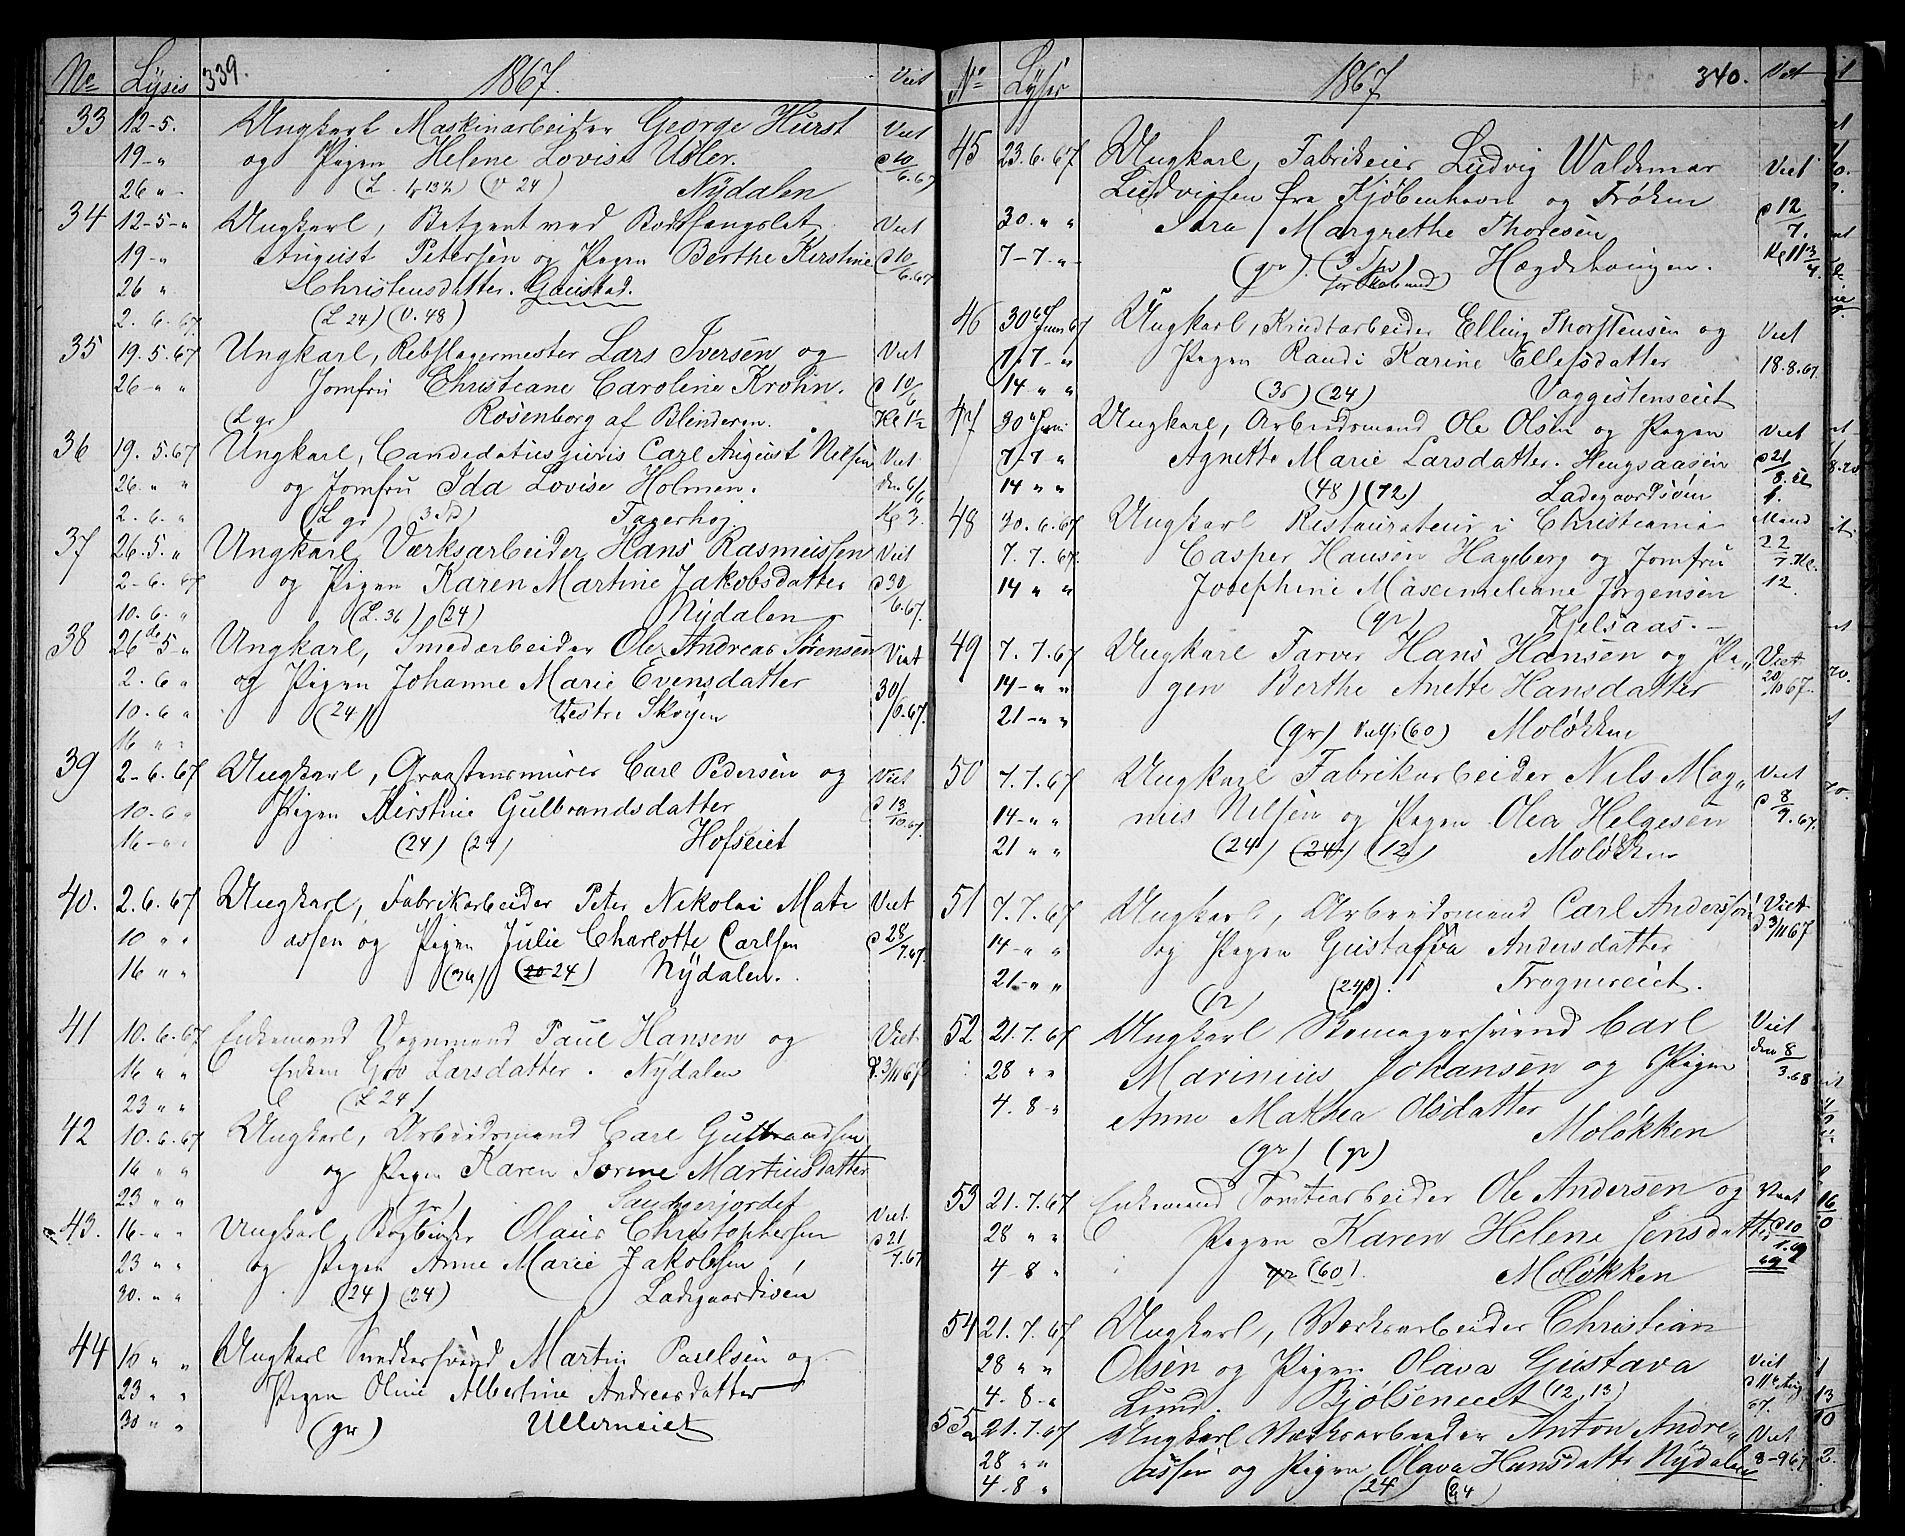 No Lysis 339. 1867. Viet
33 12-5. Ungkarl Maskinarbeider George Hurst Viet
19-" og Pigen Helene Lovise Usler. d 10/6.67
26 " (v 24) Nydalen
34 12-5-" Ungkarl, Betjent ved Bodsfængslet Viet
19-" August Petersen og Pigen Berthe Kirstine d 10/6.67
26 " Christensdatter. Gaustad.
2. 6. 67. (L 24) (v. 48)
35 19. 5. 67 Ungkarl, Rebslagermester Lars Iversen og Viet
26-" " Jomfru Christiane Caroline Krohn. d 10/6
(L gr) Rosenborg af Blinderen. Kl 1½
36 19. 5. 67 Ungkarl, Candidatus juris Carl August Nilsen Viet
26. " " og Jomfru Ida Lovise Holmen. den 6/6
2. 6. " (L gr) (3 Sp) Fagerhøj. Kl 3.
37 26. 5. " Ungkarl, Værksarbeider Hans Rasmussen Viet
2-6. 67 og Pigen Karen Martine Jakobsdatter d 30/6.67.
10. 6. " (L. 36) (24) Nydalen
38 26de 5 " Ungkarl, Smedarbeider Ole Andreas Sørensen Viet
2. 6 " og Pigen Johanne Marie Evensdatter 30/6.67.
10. 6 " (24) Vestre Skøyen
16 " "
39 2-6. 67 Ungkarl, Graastensmurer Carl Pedersen og Viet
10. 6 " Pigen Kirstine Gulbrandsdatter d 13/10.67.
16-" " (24) (24) Hofseiet
40. 2. 6. 67 Ungkarl, Fabrikarbeider Peter Nikolai Mati Viet
10 " " assen og Pigen Julie Charlotte Carlsen d 28/7.67.
16 " " (36) (20 24) Nydalen.
41 10. 6. 67 Enkemand Vognmand Paul Hansen og Viet
16 " " Enken Gro Larsdatter. Nydalen d. 3/11 67
23 " " (L 24)
42 10. 6. 67 Ungkarl, Arbeidsmand Carl Gulbrandsen
16 " " og Pigen Karen Sorine Martinusdatter
23 " " (gr)
43. 16-" " Ungkarl, Bogbinder Olaus Christophersen Viet
23 " " og Pigen Anne Marie Jakobsen d 21/7.67
30. " " (24) (24) Ladegaardsøen
44 16 " " Ungkarl Snedkersvend Martin Paulsen og
23 " " Pigen Oline Albertine Andreasdatter
30 " " (gr) Ullerneiet
No Lyser 1867 340. Viet
45 23. 6. 67 Ungkarl, Fabrikeier Ludvig Waldemar Viet
Ludvigsen fra Kjøbenhavn og Frøken d 12/7.
30. " " Sara Margrethe Thoresen
7-7-" (gr). (3 Sp) Hægdehougen.
46 30te Juni 67 Ungkarl, Krudtarbeider Elling Thorstensen og Viet
7. 7-" Pigen Randi Karine Ellefsdatter 18. 8. 67.
14 " " (36) (24)
47 30te Juni Ungkarl, Arbeidsmand Ole Olsen og Pigen Viet
7-7 " Agnette Marie Larsdatter. Hengsaasen d 21/8.
14 " " (48) (72) Ladegaardsøen
48 30. 6. 67 Ungkarl Restaurateur i Christiania Mand
7. 7. 67. Casper Hansen Hagberg og Jomfru 22/7. Kl.
14 " " Josephine Maximiliane Jørgensen 12.
(gr) Kjelsaas.
49 7. 7. 67 Ungkarl Farver Hans Hansen og Pi„ Viet
14-" " gen Berthe Anette Hansdatter 20/10 67.
21-" " (gr) (60) Moløkken
50 7. 7. 67 Ungkarl Fabrikarbeider Nils Mag„ Viet
14-" " nus Nilsen og Pigen Olea Helgesen d 8/9. 67.
21 " " (24) (24) (12) Moløkken
51 7. 7. 67 Ungkarl, Arbeidsmand Carl Andersson Viet
14-" " og Pigen Gustafva Andersdatter d 3/11 67
21-" " (12) (24). Frogneseiet.
52 21. 7. 67 Ungkarl Skomagersvend Carl Viet
28 " " Marinius Johansen og Pigen den 8/3.68
4. 8-" Anne Mathea Olsdatter
(gr) (gr) Moløkken
53 21. 7. 67 Enkemand Tomtearbeider Ole Andersen og Viet
28 " " Pigen Karen Helene Jensdatter d 10
4-8 " gr (60). Moløkken 69
54 21. 7. 67 Ungkarl, Værksarbeider Christian
28 " " Olsen og Pigen Olava Gustava Viet
4. 8-" Lund. Bjølseneiet (12, 13) d 11te Aug 67.
55 21. 7. 67 Ungkarl Værksarbeider Anton Andre„ Viet
28 " " assen og Pigen Olava Hansdatter Nydalen 8-9 67
4. 8 " (24) (24)